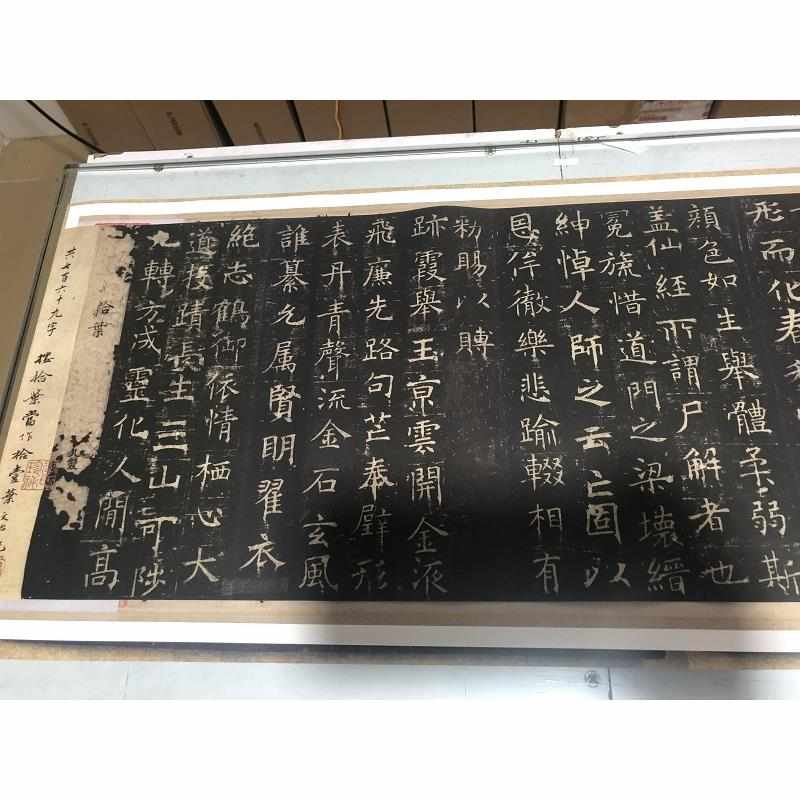 形而化春
顏色如生舉體柔弱斯
盖仙經所謂尸解者也
冕旒惜道門之梁壞縉
紳悼人師之云亡固以
恩侔徹樂悲踰輟相有
勑賜以賻
跡霞舉王京雲開金液
飛廉先路句芒奉壁形
表丹青聲流金石玄風
誰纂允属賢明翟衣
絶志鶴御依情栖心大
道投蹟長生三山可陟
九轉方成靈化人間高
拾葉
共七百六十九字 拾葉當作拾壹葉